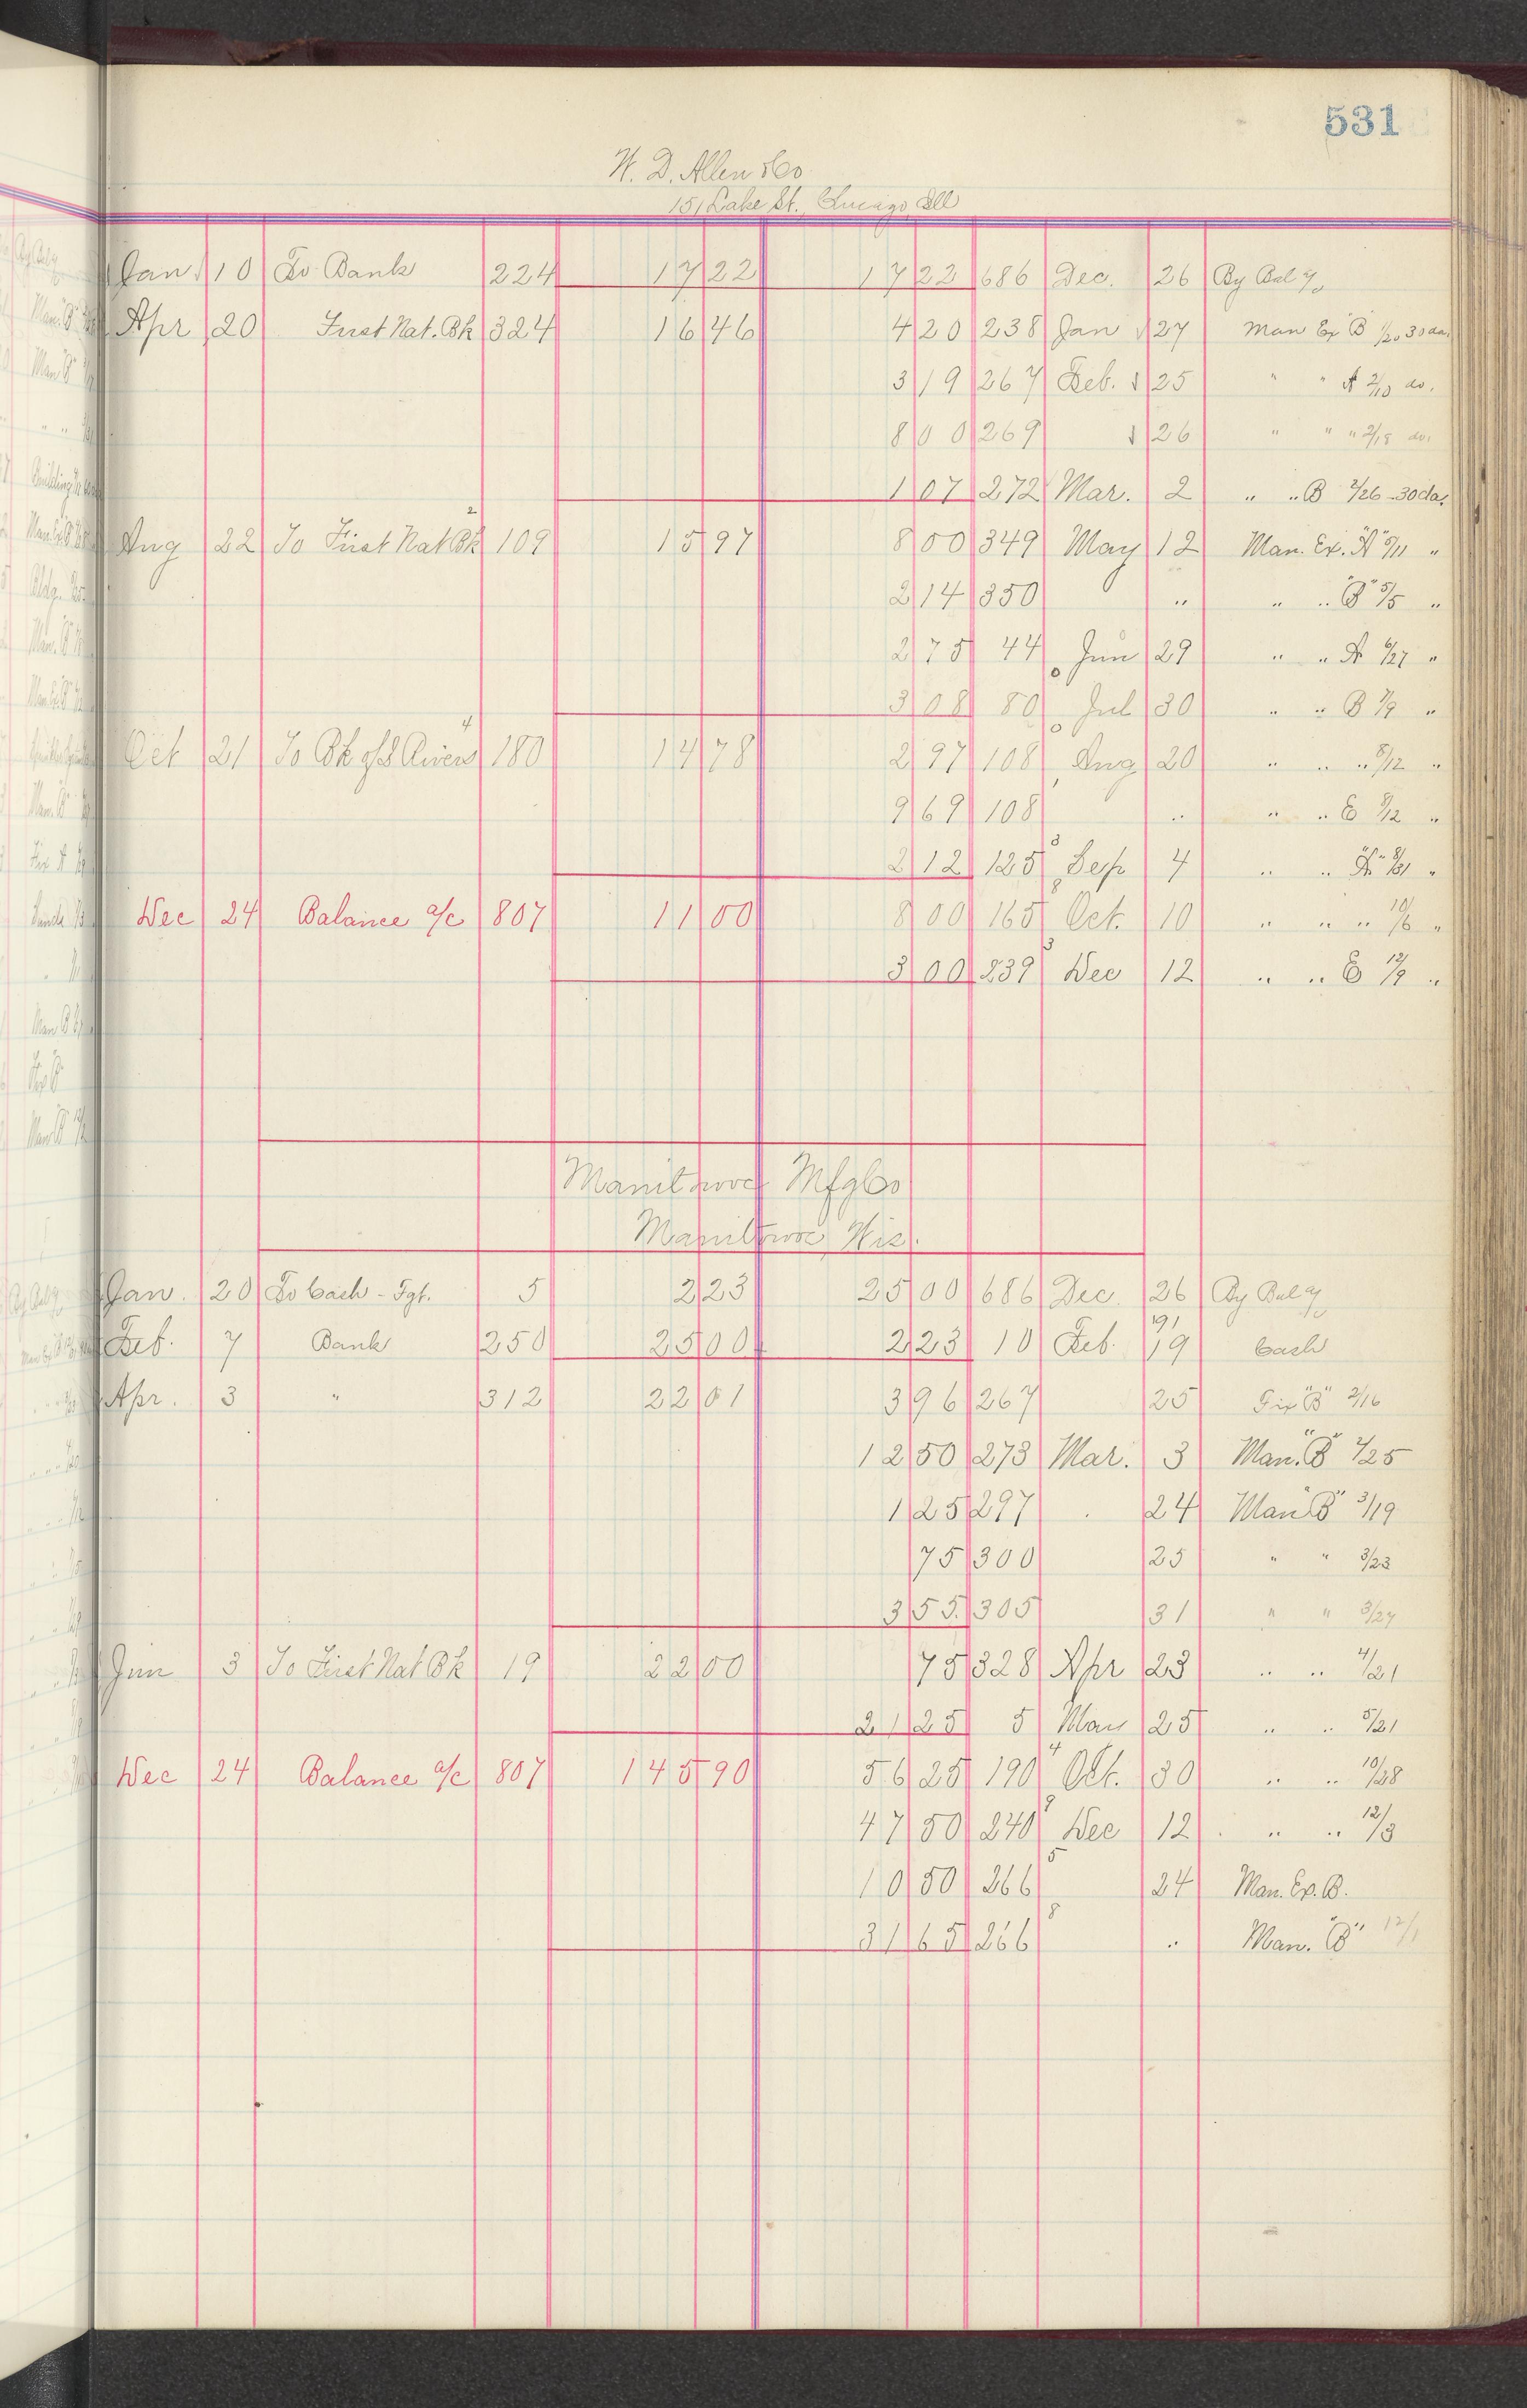 531
W. D. Allen & Co
151 Lake St., Chicago Ill
Jan 10 To Bank 224 17 22 17 22 686 Dec. 26 By Bal %
Apr 20 First Nat. Bk 324 16 46 4 20 238 Jan 27 Man Ex "B" 1/20 30 da.
3 19 267 Feb. 25 " " A 2/10 do.
8 00 269 26 " " " 2/18 do.
1 07 272 Mar. 2 " " B 2/26 - 30 da.
Aug 22 To First Nat Bk 2 109 15 97 8 00 349 May 12 Man. Ex. "A" 5/11 "
2 14 350 " " " "B" 5/5 "
2 75 44 Jun 29 " " A 6/27 "
3 08 80 Jul 30 " " B 7/9 "
Oct 21 To Bk of 2 Rivers 4 180 14 78 2 97 108 Aug 20 " " " 8/12 "
9 69 108 " " " E 8/12 "
2 12 125 3 Sep 4 " " "A" 8/31 "
Dec 24 Balance a/c 807 11 00 8 00 165 Oct. 10 " " " 10/6 "
3 00 239 3 Dec 12 " " E 12/9 "
Manitowoc Mfg Co
Manitowoc Wis.
Jan. 20 To Cash - Fgt. 5 2 23 25 00 686 Dec 26 By Bal %
91
Feb. 7 Bank 250 25 00 2 23 10 Feb. 19 Cash
Apr. 3 " 312 22 01 3 96 267 25 Fix "B" 2/16
12 50 273 Mar. 3 Man. "B" 2/25
1 25 297 24 Man "B" 3/19
75 300 25 " " 3/23
3 55 305 31 " " 3/27
Jun 3 To First Nat Bk 19 22 00 75 328 Apr 23 " " 4/21
21 25 5 May 25 " " 5/21
Dec 24 Balance a/c 807 145 90 56 25 190 4 Oct. 30 " " 10/28
47 50 240 9 Dec 12 " " 12/3
10 50 266 5 24 Man. Ex. B.
31 65 266 8 " Man. "B" 12/1